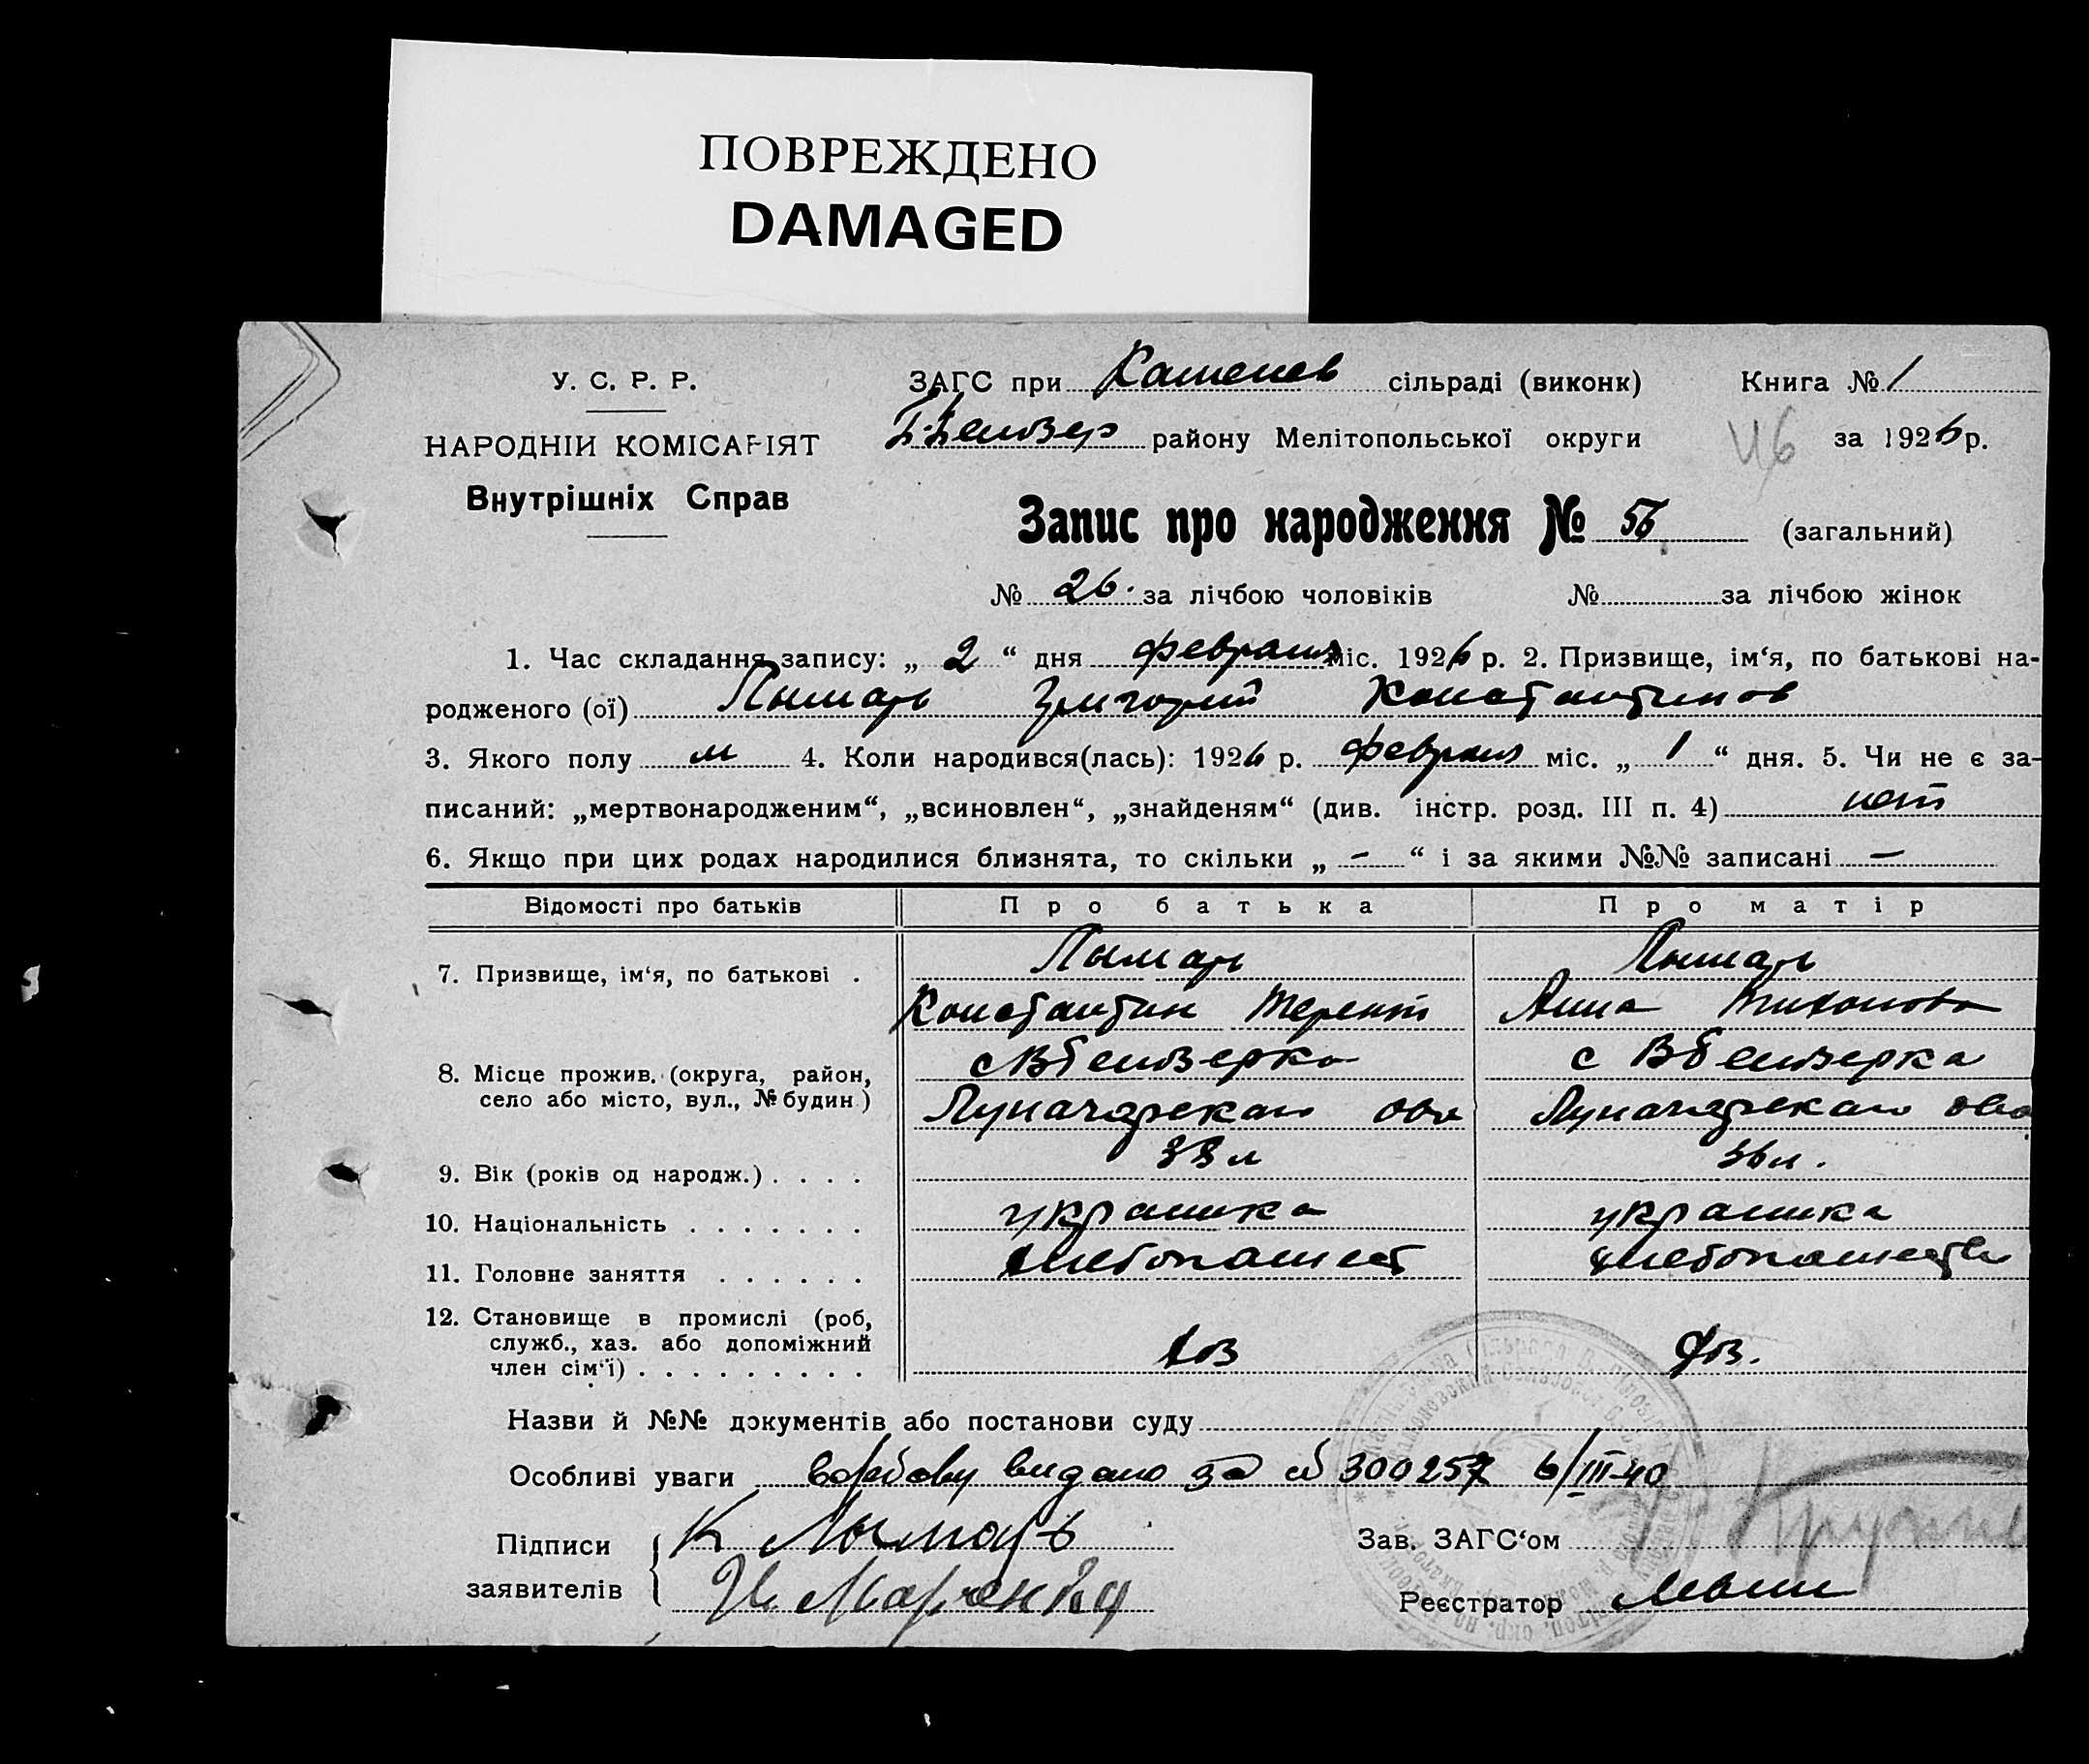 ПОВРЕЖДЕНО
DAMAGED
У. С. Р. Р.
НАРОДНІЙ КОМІСАРІЯТ
Внутрішніх Справ
ЗАГС при сільраді (виконк)
Книга № 1
району Мелітопольської округи
за 1926 р.
Запис про народження № 56 (загальний)
№ 26. за лічбою чоловіків № за лічбою жінок
1. Час складання запису: „ 2 “ дня февраля міс. 1926 р. 2. Призвище, ім‘я, по батькові на-
родженого (ої) Лымарь Григорий Константинов
3. Якого полу м 4. Коли народився(лась): 1926 р. февраля міс. „ 1 “ дня. 5. Чи не є за-
писаний: „мертвонародженим“, „всиновлен“, „знайденям“ (див. інстр. розд. III п. 4) нет
6. Якщо при цих родах народилися близнята, то скільки „ - “ і за якими №№ записані —
Відомості про батьків Про батька Про матір
7. Призвище, ім‘я, по батькові . Лымарь Лымарь
Константин Терент Анна Тихонова
8. Місце прожив. (округа, район, село або місто, вул., № будин.) с Вбелозерка с Вбелозерка
Луначарская Луначарская
9. Вік (років од народж.) . . . . 38 л 36 л.
10. Національність . . . . . . . украинка
11. Головне заняття . . . . . . хлебопашест хлебопашеств
12. Становище в промислі (роб, служб., хаз. або допоміжний член сім‘ї) . . . . . . . . . хоз
Назви й №№ документів або постанови суду
Особливі уваги видано за 300257 6/III-40
Підписи заявителів К Лымарь
Зав. ЗАГС‘ом
Реєстратор